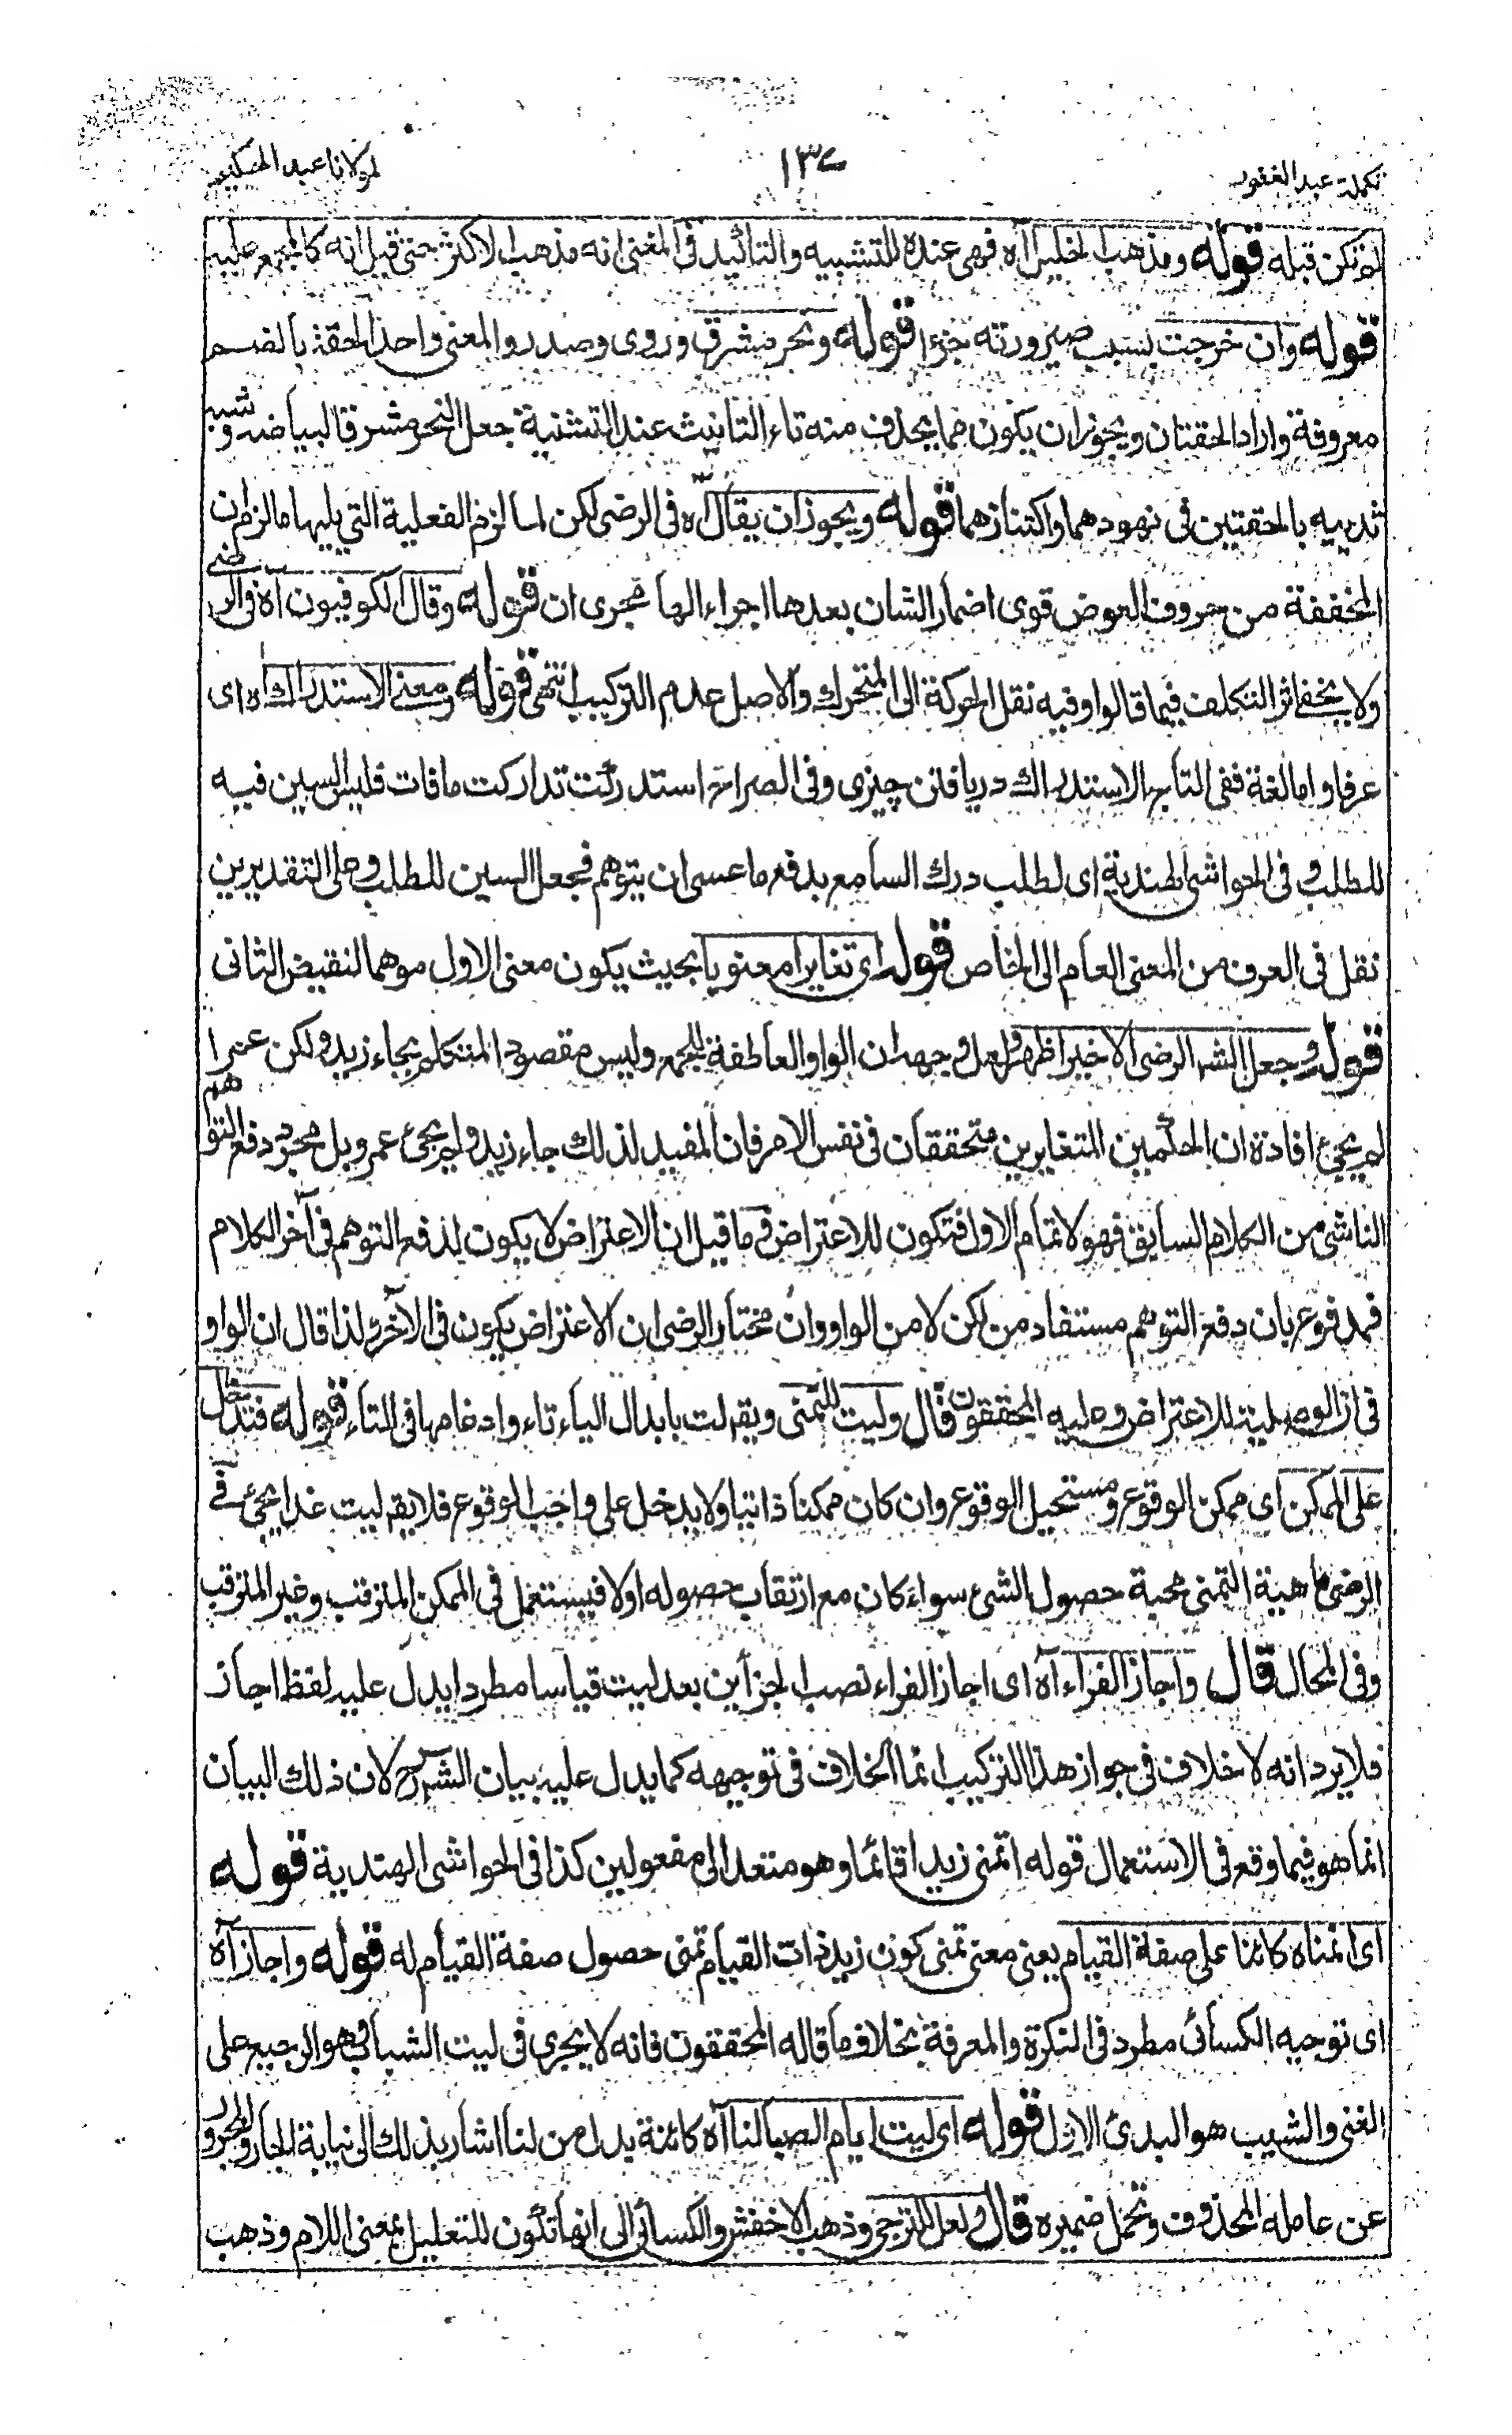 تكملة عبد الغفور ١٣٧ لمولانا عبد الحكيم
لم تكن قبله قوله ومذهب الخليل آه فهى عنده للتشبيه والتائيد فى المغنى انه مذهب الاكثر حتى قيل انه كالمجمع عليه
قوله وان خرجت بسبب صيرورته جزءا قوله ونحر مشرق وروى وصدر والمعنى واحد الحقة بالضم
معروفة واراد الحقتان ويجوز ان يكون مما يحذف منه تاء التانيث عند التثنية جعل النحر مشرقا لبياضه وشبه
ثدييه بالحقتين فى نهودهما واكتنازهما قوله ويجوز ان يقال آه فى الرضى لكن لما لزم الفعلية التى يليها ما لزم ان
المخففة من حروف العوض قوى اضمار الشان بعدها اجراء لها مجرى ان قوله وقال الكوفيون آه فى الرضى
ولا يخفى اثر التكلف فيما قالوا وفيه نقل الحركة الى المتحرك والاصل عدم التركيب انتهى قوله ومعنى الاستدراك آه اى
عرفا واما لغة ففى التاج الاستدراك دريافتن چيزى وفى الصراح استدركت تداركت ما فات فليس السين فيه
للطلب و فى الحواشى الهندية اى لطلب درك السامع بدفع ما عسى ان يتوهم فجعل السين للطلب وعلى التقديرين
نقل فى العرف من المعنى العام الى الخاص قوله اى تغايرا معنويا بحيث يكون معنى الاول موهما لنقيض الثانى
قوله وجعل الشه الرضى الاخير اظهر ولعل وجهه ان الواو العاطفة للجمع وليس مقصود المتكلم بجاء زيد ولكن عمرا
لم يجئ افادة ان الحكمين المتغايرين متحققان فى نفس الامر فان المفيد لذلك جاء زيد ولم يجئ عمرو بل مجرد دفع التوهم
الناشى من الكلام السابق فهو لاتمام الاول فتكون للاعتراض وما قيل ان الاعتراض لا يكون لدفع التوهم فى آخر الكلام
فمدفوع بان دفع التوهم مستفاد من لكن لا من الواو وان مختار الرضى ان الاعتراض يكون فى الآخر ولذا قال ان الواو
فى ان الوصلية للاعتراض وعليه المحققون قال وليت للتمنى ويقه لت بابدال الياء تاء وادغامها فى التاء قوله فتدخل
على الممكن اى ممكن الوقوع ومستحيل الوقوع وان كان ممكنا ذاتيا ولا يدخل على واجب الوقوع فلا يقه ليت غدا يجئ فى
الرضى ماهية التمنى محبة حصول الشئ سواء كان مع ارتقاب حصوله اولا فيستعمل فى الممكن المترقب وغير المترقب
وفى المحال قال واجاز الفراء آه اى اجاز الفراء نصب الجزأين بعد ليت قياسا مطردا يدل عليه لفظ اجاز
فلا يرد انه لا خلاف فى جواز هذا التركيب انما الخلاف فى توجيهه كما يدل عليه بيان الشرح لان ذلك البيان
انما هو فيما وقع فى الاستعمال قوله اتمنى زيدا قائما وهو متعد الى مفعولين كذا فى الحواشى الهندية قوله
اى اتمناه كائنا على صفة القيام يعنى معنى تمنى كون زيد ذات القيام تمنى حصول صفة القيام له قوله واجاز آه
اى توجيه الكسائى مطرد فى النكرة والمعرفة بخلاف ما قاله المحققون فانه لا يجرى فى ليت الشباب هو الرجيع على
الفتى والشيب هو البدئ الاول قوله اى ليت ايام الصبا لنا آه كائنة بدل من لنا اشار بذلك الى نيابة الجار والمجرور
عن عامله المحذوف وتحمل ضميره قال ولعل للترجى وذهب الاخفش والكسائى الى انها تكون للتعليل بمعنى اللام وذهب